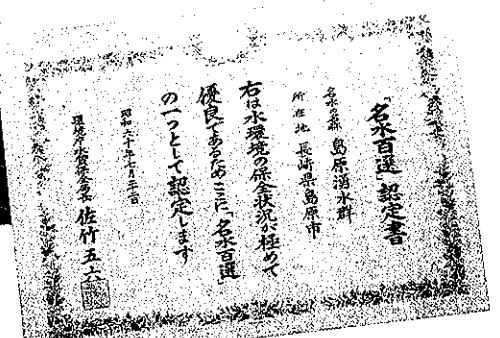 「名水百選」認定書
名水の名称 島原湧水群
所在地 長崎県島原市
右は水環境の保全状況が極めて
優良であるためここに「名水百選」
の一つとして認定します
昭和六十年七月二十二日
環境庁水質保全局長 佐竹五六